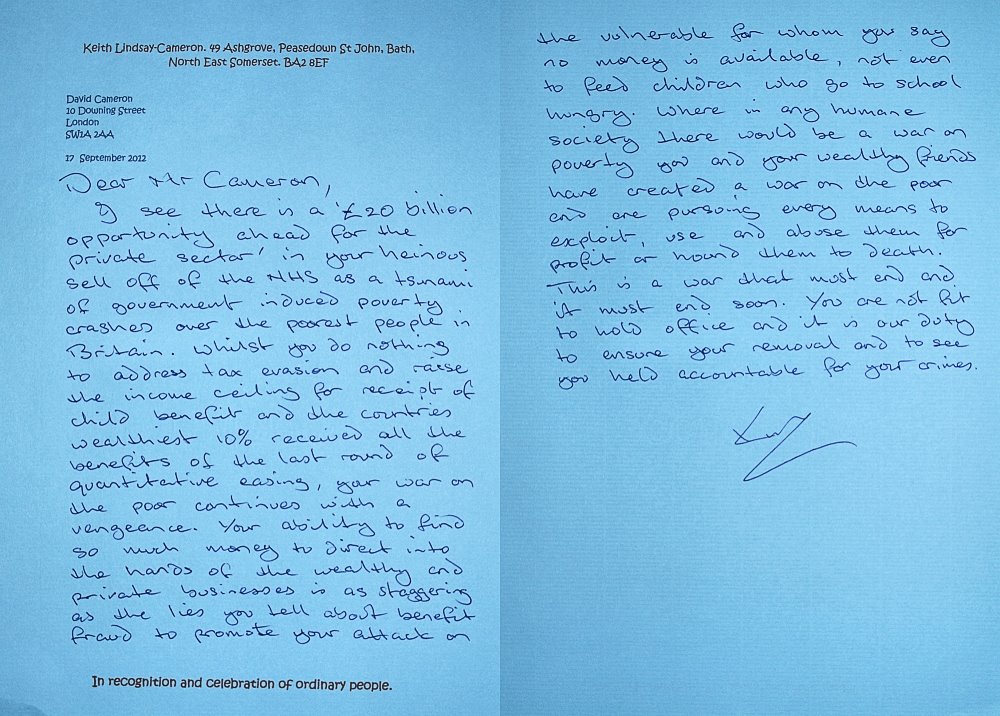 Keith Lindsay-Cameron. 49 Ashgrove, Peasedown St John, Bath,
North East Somerset. BA2 8EF
David Cameron
10 Downing Street
London
SW1A 2AA
17 September 2012
Dear Mr Cameron,
I see there is a '£20 billion
opportunity ahead for the
private sector' in your heinous
sell off of the NHS as a tsunami
of government induced poverty
crashes over the poorest people in
Britain. Whilst you do nothing
to address tax evasion and raise
the income ceiling for receipt of
child benefit and the countries
wealthiest 10% received all the
benefits of the last round of
quantitative easing, your war on
the poor continues with a
vengeance. Your ability to find
so much money to direct into
the hands of the wealthy and
private businesses is as staggering
as the lies you tell about benefit
fraud to promote your attack on
In recognition and celebration of ordinary people.
the vulnerable for whom you say
no money is available, not even
to feed children who go to school
hungry. Where in any humane
society there would be a war on
poverty you and your wealthy friends
have created a war on the poor
and are pursuing every means to
exploit, use and abuse them for
profit or hound them to death.
This is a war that must end and
it must end soon. You are not fit
to hold office and it is our duty
to ensure your removal and to see
you held accountable for your crimes.